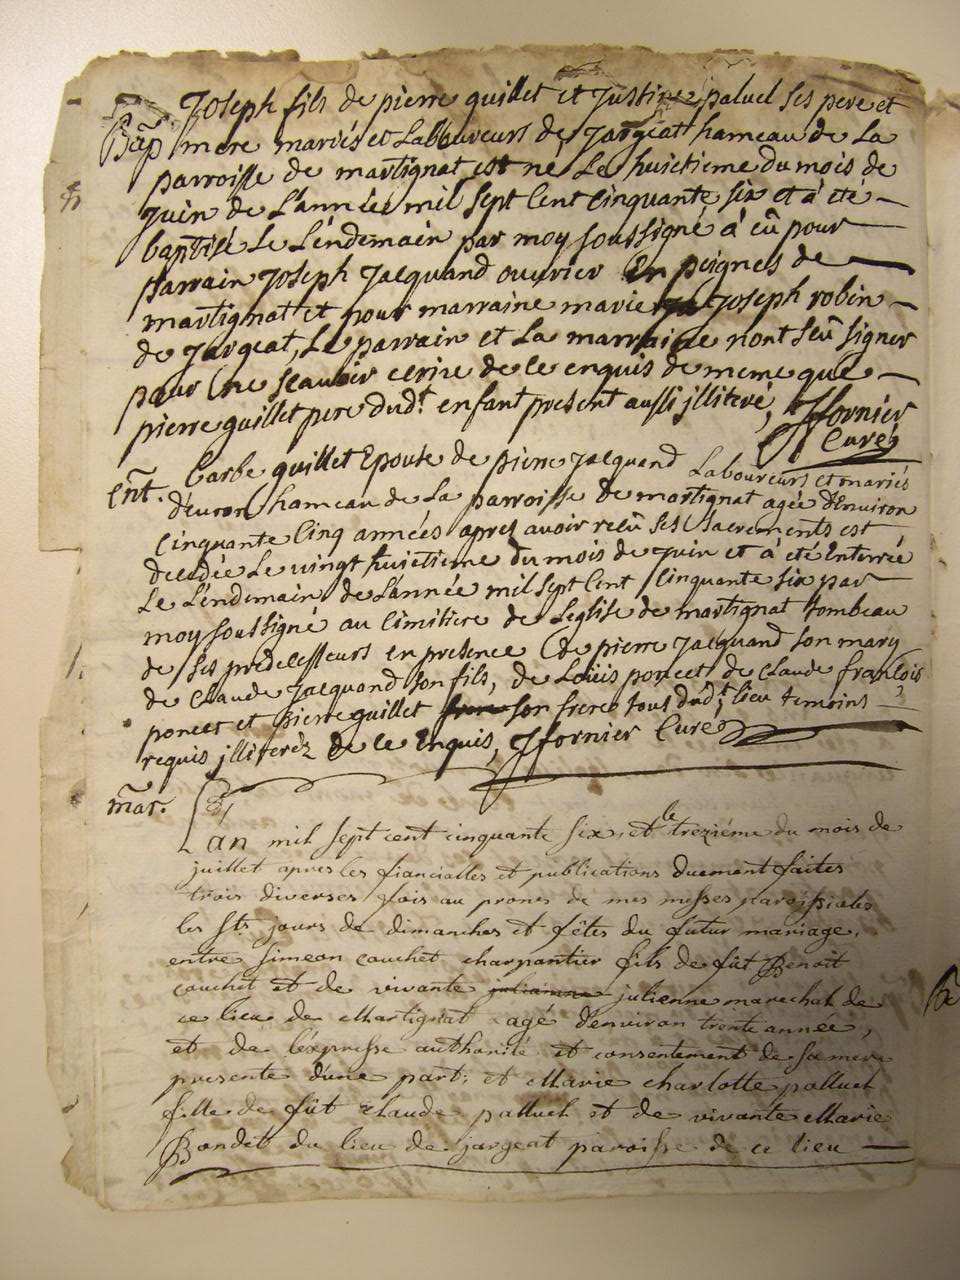 Bap Joseph fils de pierre guillet et Justine paluel ses pere et
mere mariés et Laboureurs de Jargeat hameau de La
parroisse de martignat est né Le huictieme du mois de
Juin de L'année mil sept Cent Cinquante six et à été
baptisé Le Lendemain par moy soussigné à eû pour
parrain Joseph Jacquand ouvrier en peignes de
martignat et pour marraine marie Joseph robin
de Jargeat, Le parrain et La marraine n'ont seû signer
pour ne scauoir ecrire de ce enquis de meme que
pierre guillet pere dudt. enfant present aussi jlliteré, Jfornier
Curé
ent. barbe guillet Epouse de pierre Jacquand Laboureurs et mariés
d'euron hameau de La parroisse de martignat agée d'Environ
Cinquante Cinq années apres avoir receû ses Sacrements est
decedée Le vingt huictieme du mois de Juin et à été Enterrée
Le Lendemain de L'année mil sept Cent Cinquante six par
moy soussigné au Cimitiere de Leglise de martignat tombeau
de ses predecesseurs en presence de pierre Jacquand son mary
de Claude Jacquand son fils, de Loüis poncet de Claude françois
poncet et pierre guillet son frere tous dudt. lieu temoins
requis jlliterez de ce Enquis, Jfornier Curé
mar. L'an mil sept cent cinquante six et le trezième du mois de
juillet apres les fiancialles et publications duement faites
trois diverses fois au prones de mes messes paroissiales
les sts jours de dimanches et fêtes du futur mariage,
entre simeon couchet charpantier fils de fût Benoit
couchet et de vivante julianne julienne marechal de
ce lieu de Martignat agé d'environ trente année,
et de l'expresse authorité et consentement de sa mere
presente d'une part; et Marie charlotte palluel
fille de fût claude palluel et de vivante Marie
Bondet du lieu de jargeat paroisse de ce lieu